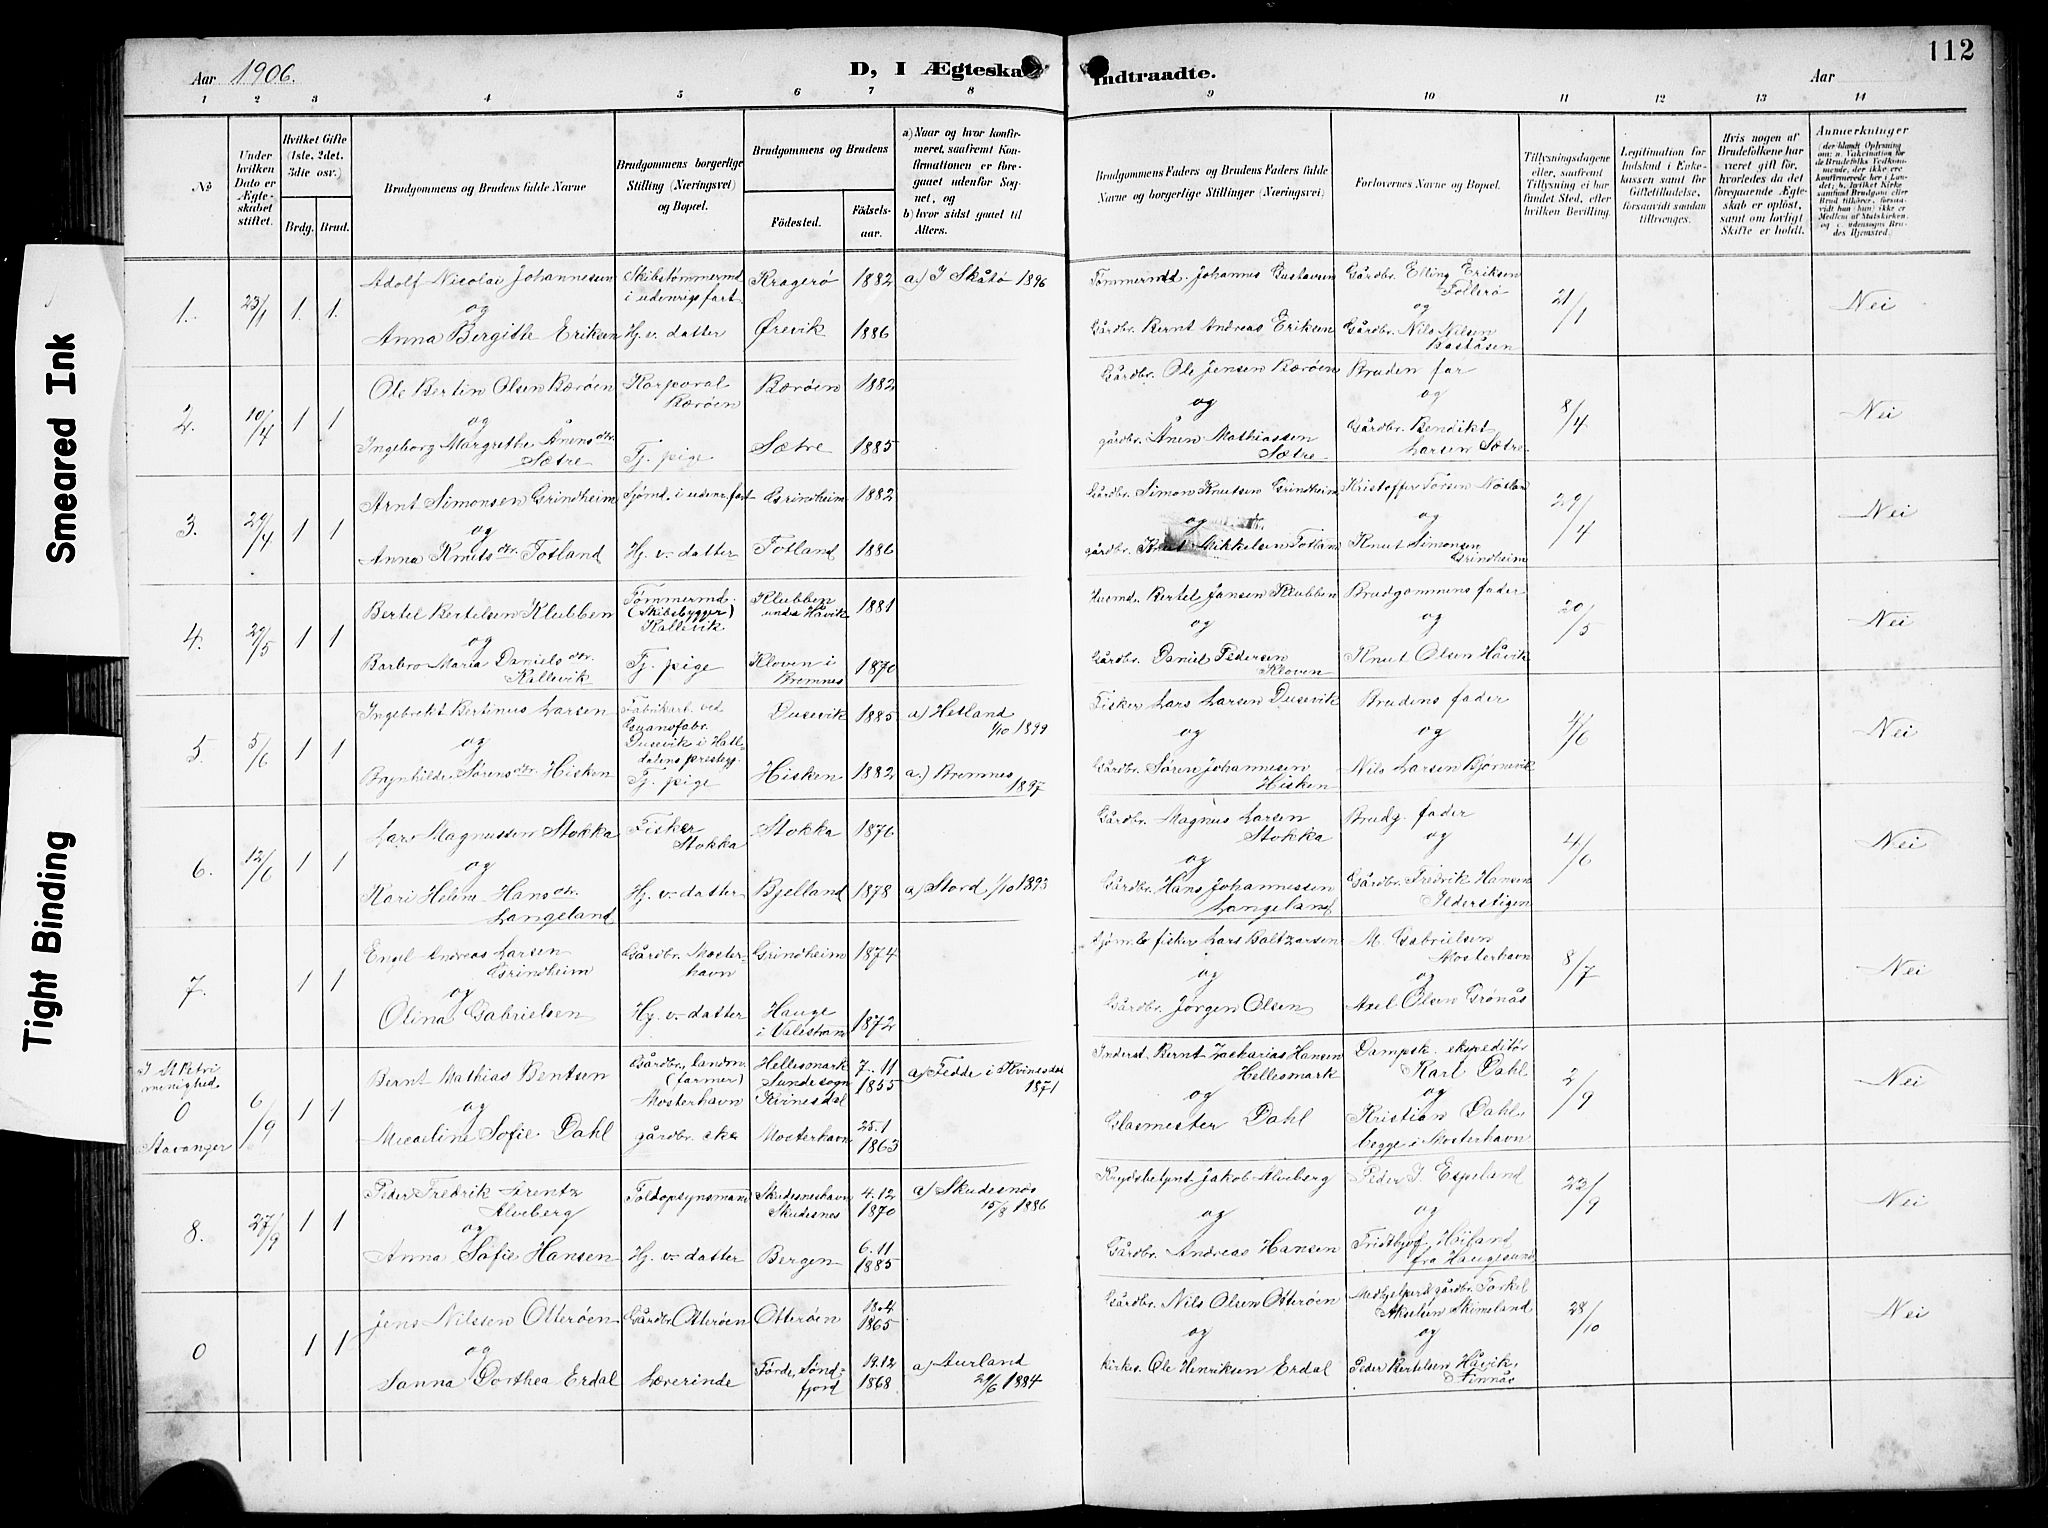 Smeared Ink
Tight Binding
Aar 1906.
D, I Ægteska
Indtraadte.
Aar
112
1 2 3 4 5 6 7 8 9 10 11 12 13 14
No
Under hvilken Dato er Ægteskabet stiftet.
Hvilket Gifte (1ste, 2det, 3die osv.)
Brdg. Brud.
Brudgommens og Brudens fulde Navne
Brudgommens borgerlige Stilling (Næringsvei) og Bopæl.
Brudgommens og Brudens
Fødested.
Fødselsaar.
a) Naar og hvor konfirmeret, saafremt Konfirmationen er foregaaet udenfor Sognet, og
b) hvor sidst gaaet til Alters.
Brudgommens Faders og Brudens Faders fulde Navne og borgerlige Stillinger (Næringsvei)
Forlovernes Navne og Bopæl.
Tillysningsdagene eller, saafremt Tillysning ei har fundet Sted, efter hvilken Bevilling.
Legitimation for Indskud i Enkekassen samt for Giftetilladelse, forsaavidt saadan tiltrænges.
Hvis nogen af Brudefolkene har været gift før, hvorledes da det foregaaende Ægteskab er opløst, samt om lovligt Skifte er holdt.
Anmerkninger
(deriblandt Oplysning om: a. Vakcination for de Brudefolks Vedkommende, der ikke ere konfirmerede her i Landet; b. hvilket Kirkesamfund Brudgom eller Brud tilhører, forsaavidt han (hun) ikke er Medlem af Statskirken, og c. udensogns Brudes Hjemsted.
1. 23/1 1. 1.
Adolf Nicolai Johannesen
og
Anna Bergitte Eriksen
Skibstømmermd i udenrigs fart
Hj. v. datter
Kragerø 1882
Ørevik 1886
a.) I Skåtø 1896
Tømmermd. Johannes Gustavsen
Gårdbr. Bernt Andreas Eriksen
Gårdbr. Elling Eriksen Follerø
og
Gårdbr. Nils Nilsen Baståsen
21/1
Nei
2. 10/4 1 1
Ole Bertin Olsen Bærøen
og
Ingeborg Margrethe Ånensdtr. Sætre
Korporal Bærøen
Tj. pige
Bærøen 1882
Sætre 1885
Gårdbr. Ole Jensen Bærøen
og
gårdbr. Ånen Mathiassen Sætre
Bruden far
og
Gårdbr. Bendikt Larsen Sætre
8/4
Nei
3. 29/4 1 1
Arnt Simonsen Grindheim
og
Anna Knutsdtr. Totland
Sjømd. i udenr. fart
Hj. v. datter
Grindheim 1882
Totland 1886
Gårdbr. Simon Knutsen Grindheim
og
gårdbr. Knut Mikkelsen Totland
Kristoffer Torsen
og
Knut Simonsen Grindheim
29/4
Nei
4. 29/5 1 1
Bertel Bertelsen Klubben
og
Barbro Maria Danielsdtr. Kallevik
Tømmermd. (Skibsbygger) Kallevik
Tj. pige
Klubben under Håvik 1881
Kloven i Bremnes 1870
Husmd. Bertel Jansen Klubben
og
Gårdbr. Daniel Pedersen Kloven
Brudgommens fader
og
Knut Olsen Håvik
20/5
Nei
5. 5/6 1 1
Ingebrekt Bertinus Larsen
og
Brynhilde Sørensdtr. Hisken
Fabrikarb. ved Guanofabr. Dusevik i Hetlandens prestegj.
Tj. pige
Dusevik 1885
Hisken 1882
a) Hetland 1/10 1899
a.) Bremnes 1897
Fisker Lars Larsen Dusevik
og
Gårdbr. Søren Johannesen Hisken
Brudens fader
og
Nils Larsen Bjørnevik
4/6
Nei
6. 12/6 1 1
Lars Magnussen Stokka
og
Kari Helene Hansdtr. Langeland
Fisker Stokka
Hj. v. datter
Stokka 1876
Bjelland 1878
a) Stord 1/10 1893
Gårdbr. Magnus Larsen Stokka
og
Gårdbr. Hans Johannessen Langeland
Brudg. fader
og
Gårdbr. Fredrik Hansen
4/6
Nei
7. 1 1
Engel Andreas Larsen Grindheim
og
Olina Gabrielsen
Gårdbr. Mosterhavn
Hj. v. datter
Grindheim 1874
Hauge i Valestrand 1872
Sjøm. & fisker Lars Baltzarsen
og
Gårdbr. Jørgen Olsen
M. Gabrielsen Mosterhavn
og
Axel Olsen Grønås
8/7
Nei
I St Petri menighed.
0
Stavanger
6/9 1 1
Bernt Mathias Bentsen
og
Micaeline Sofie Dahl
Gårdbr. landm. (farmer) Mosterhavn
gårdbr. eske
Hellesmark Sunde sogn Kvinesdal 7.11 1855
Mosterhavn 25.1 1863
a) Fedde i Kvinesdal 1871
Inderst. Bernt Zackarias Hansen Hellesmark
og
Glasmester Dahl
Dampsk. ekspeditør Karl Dahl
og
Kristian Dahl,
begge i Mosterhavn
2/9
Nei
8. 27/9 1 1
Peder Fredrik Arentz Alveberg
og
Anna Sofie Hansen
Toldopsynsmand
Hj. v. datter
Skudesneshavn Skudesnes 4.12 1870
Bergen 6.11 1885
a) Skudesnes 15/8 1886
Krydsbetjnt Jakob Alveberg
og
Gårdbr. Andreas Hansen
Peder I. Espeland
og
Fridtjof Høiland fra Haugesund
23/9
Nei
0 1 1
Jens Nilssen Otterøen
og
Sanna Dorthea Erdal
Gårdbr. Otterøen
Lærerinde
Otterøen 18.4 1865
Førde, Søndfjord 19.12 1868
a) Aurland 29/6 1884
Gårdbr. Nils Olsen Otterøen
og
Kirkes. Ole Henriksen Erdal
Medhjelper & gårdbr. Torkel Akselsen Skimeland
og
Peder Bertelsen Håvik, Finnås
28/10
Nei